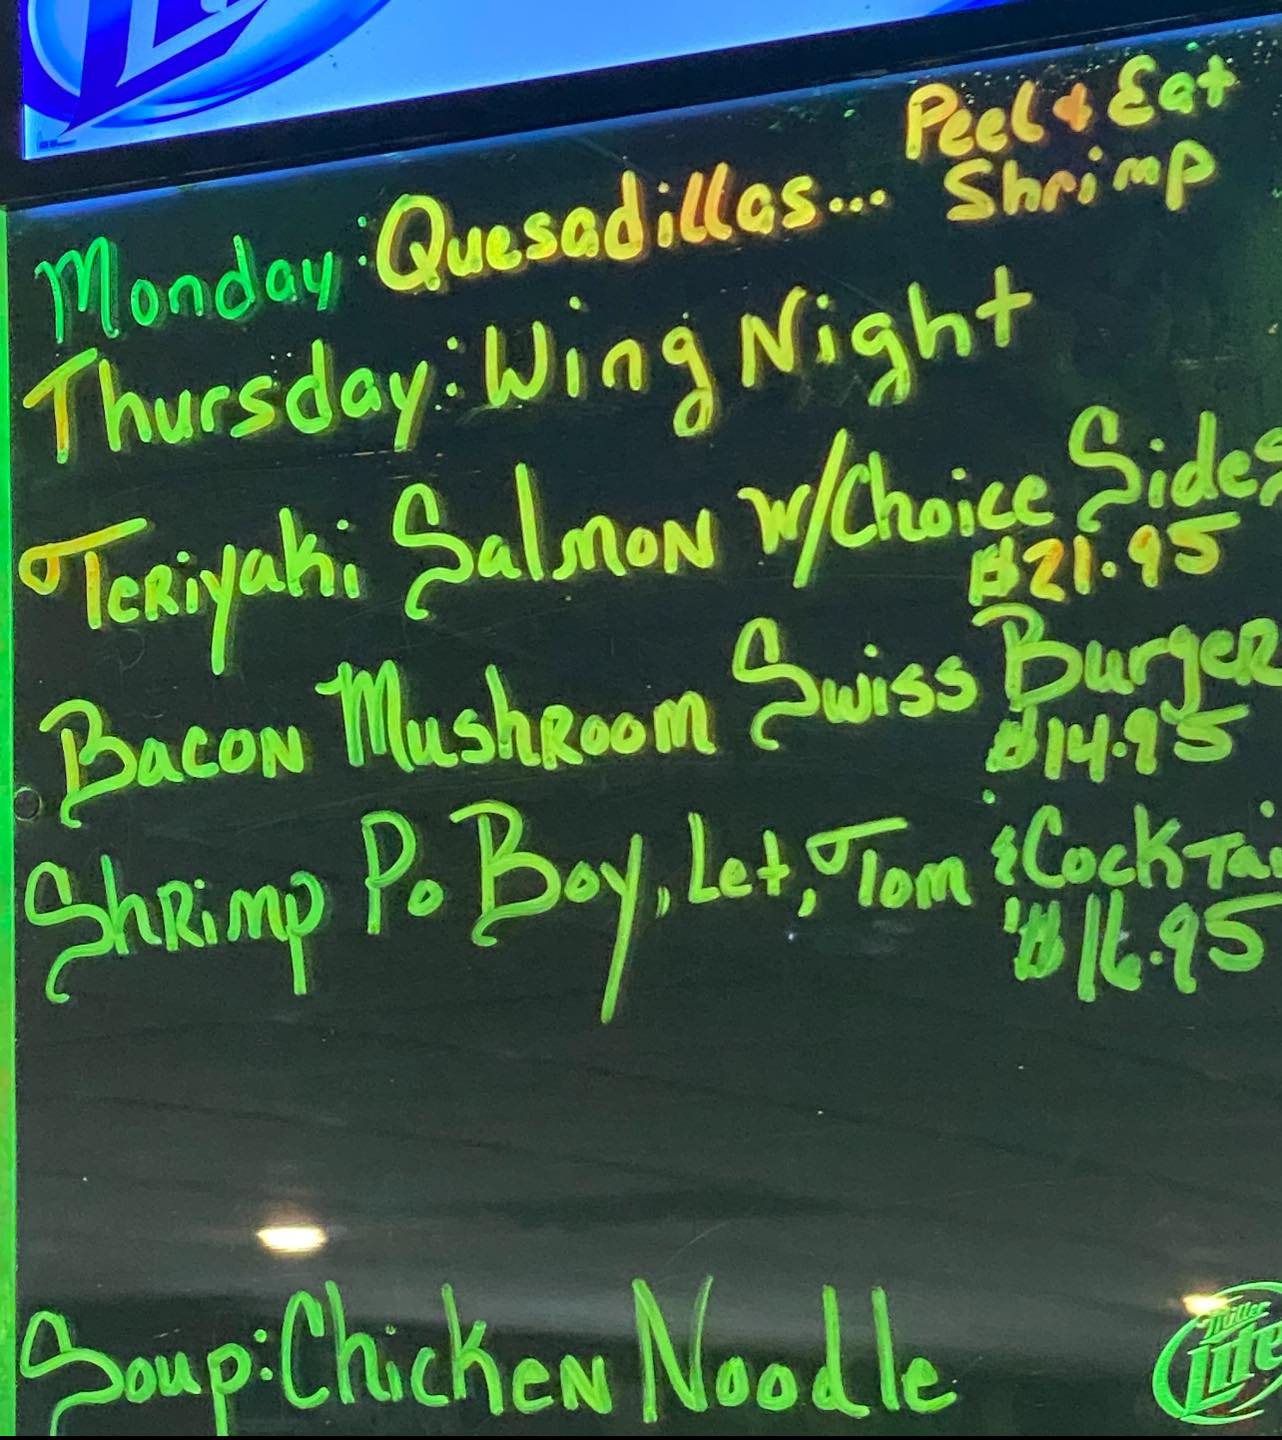 Peel & Eat
Monday: Quesadillas... Shrimp
Thursday: Wing Night
Teriyaki Salmon w/Choice Sides
$21.95
Bacon Mushroom Swiss Burger
$14.95
Shrimp Po Boy, Let, Tom & Cocktai
$16.95
Soup: Chicken Noodle
Miller
Lite